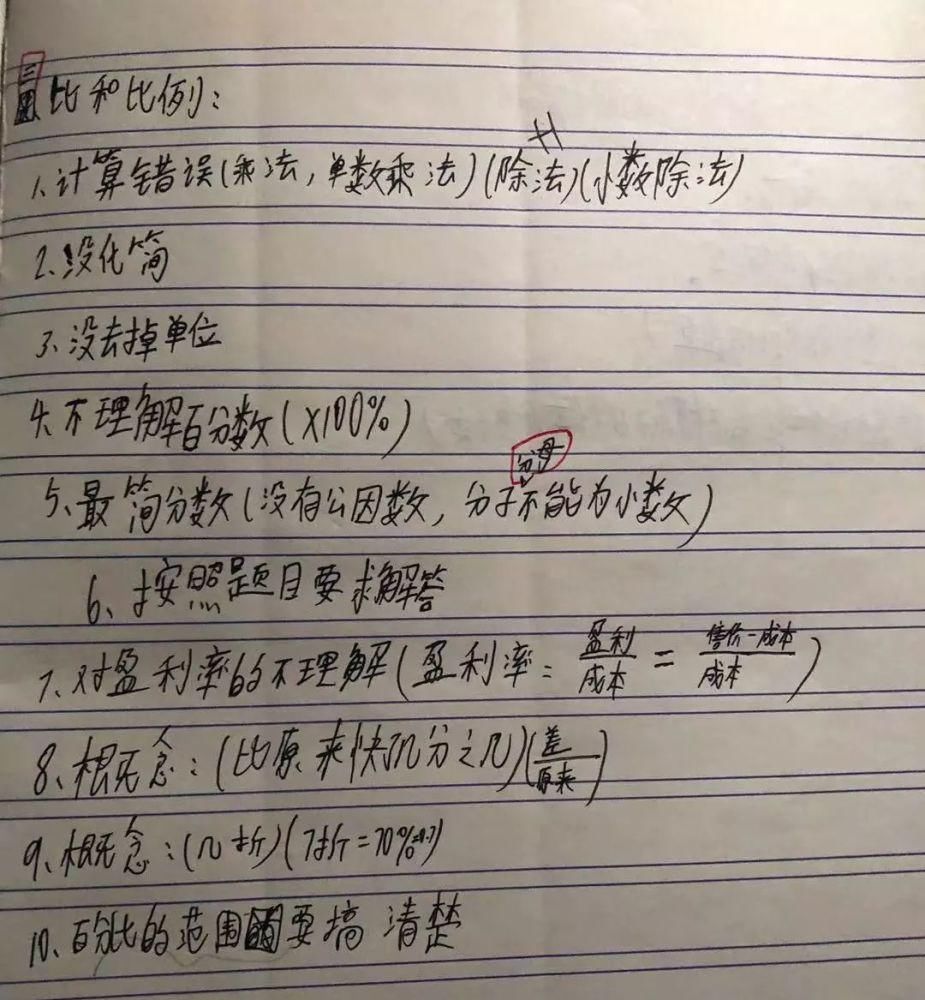 三 比和比例:
1、计算错误(乘法,单数乘法)(除法)(小数除法)
2、没化简
3、没去掉单位
4、不理解百分数(×100%)
分母
5、最简分数(没有公因数,分子不能为小数)
6、按照题目要求解答
7、对盈利率的不理解(盈利率=盈利/成本=售价-成本/成本)
8、概念:(比原来快几分之几)(差/原来)
9、概念:(几折)(7折=70%=0.7)
10、百分比的范围要搞清楚